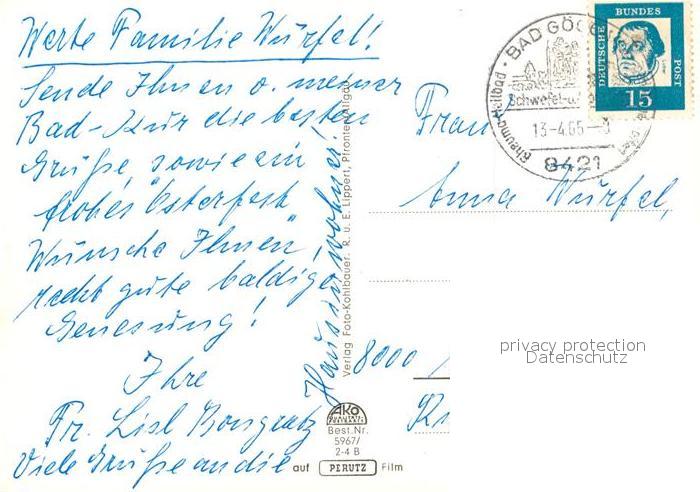 Werte Familie Würfel!
Sende Ihnen v. meiner
Bad-Kur die besten
Grüße, sowie ein
frohes "Osterfest"
Wünsche Ihnen,
recht gute baldige
Genesung!
Ihre
Fr. Lisl
Viele Grüße an die
Hausbewohner!
Verlag Foto-Kohlbauer. R. u. E. Lippert, Pfronten/Allgäu
AKO
QUALITÄTS-
POSTKARTE
Best.Nr.
5967/
2-4 B
auf PERUTZ Film
BAD GÖGG
Schwefel-u.
Rheuma-Heilbad
13-4.65-
8421
DEUTSCHE
BUNDES
POST
15
Frau
Anna Würfel,
8000
privacy protection
Datenschutz